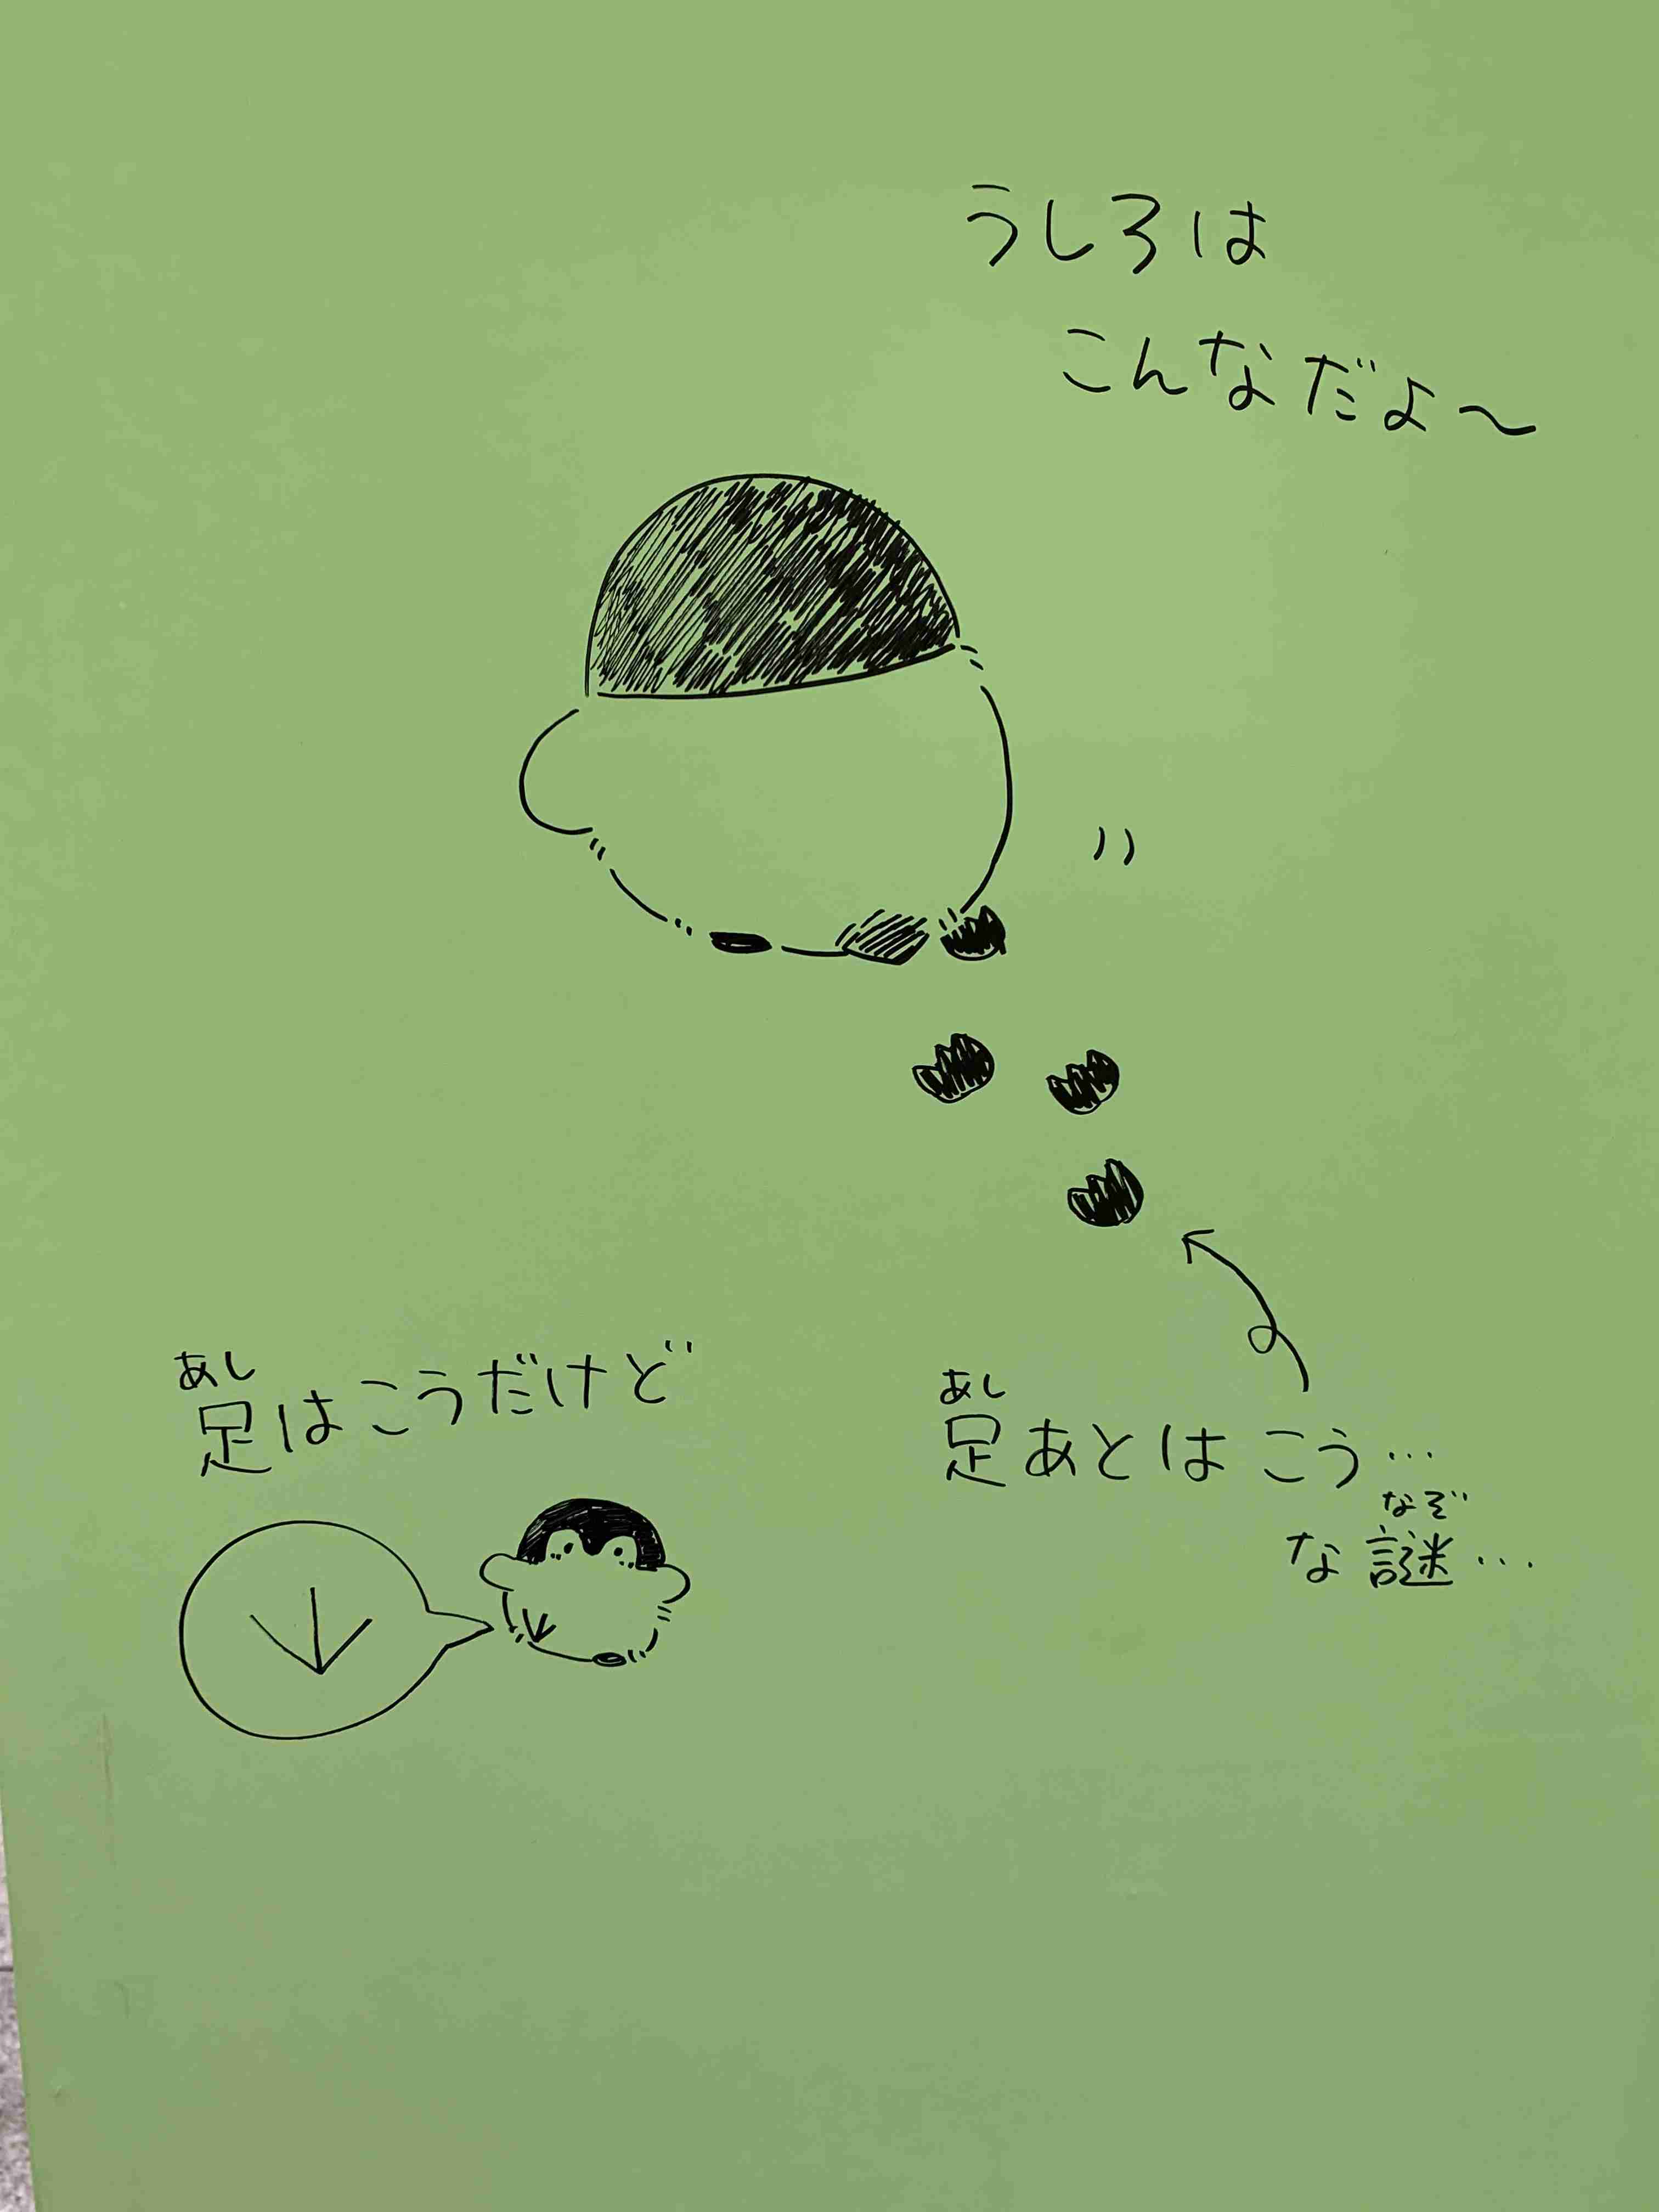 うしろは
こんなだよ〜
あし
足はこうだけど
あし
足あとはこう…
なぞ
な謎…